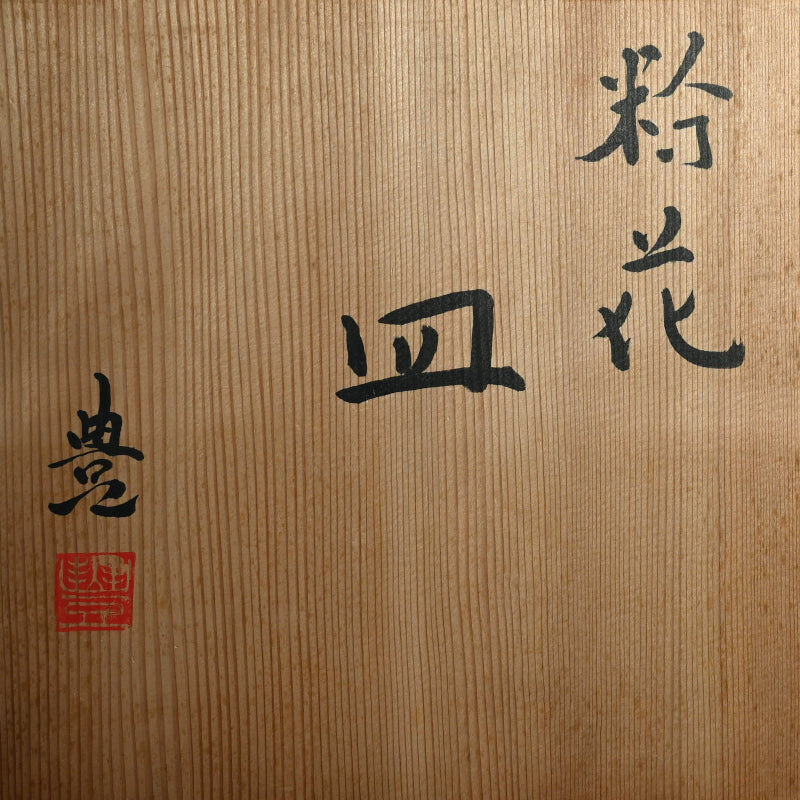 粉花
皿
豊
豐